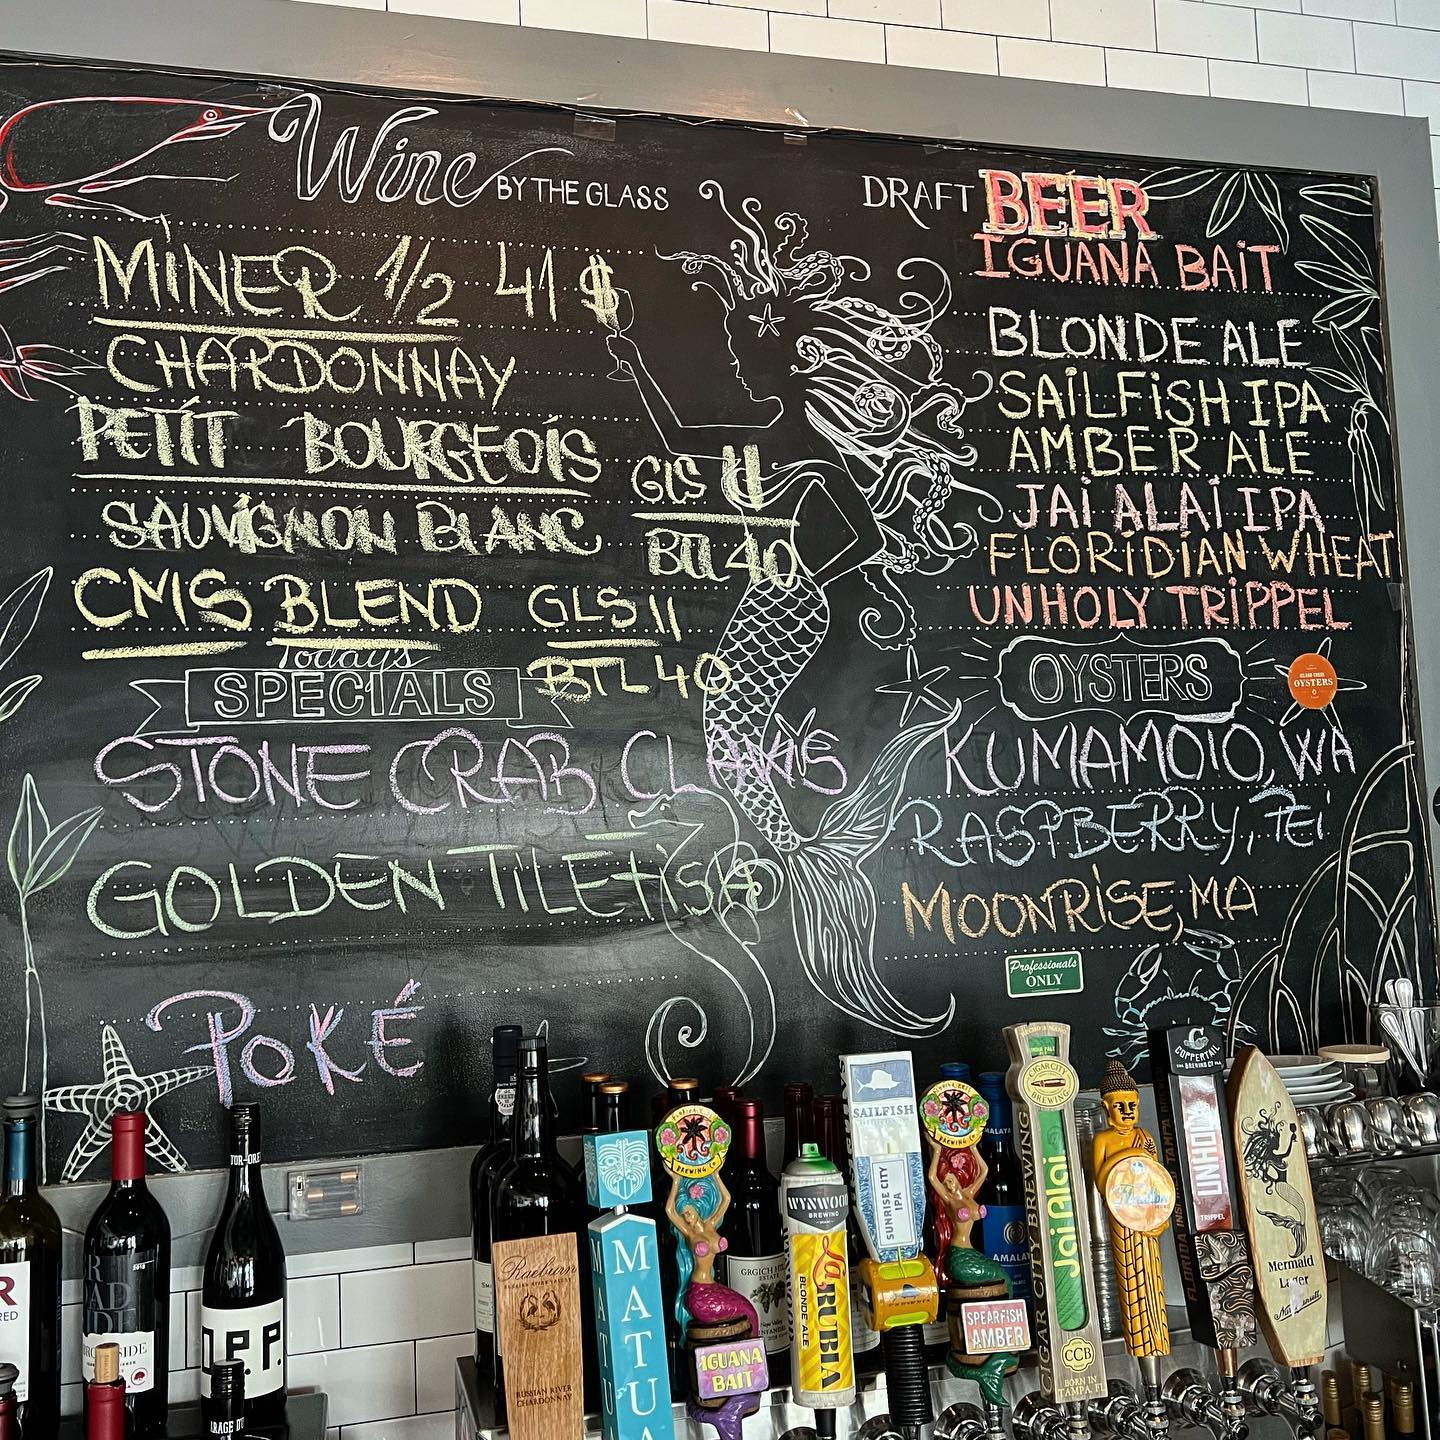 Wine BY THE GLASS
MINER 1/2 41 $
CHARDONNAY
PETIT BOURGEOIS
SAUVIGNON BLANC
GLS 11
BTL 40
CMS BLEND GLS 11
BTL 40
Today's
SPECIALS
STONE CRAB CLAWS
GOLDEN TILEFISH
POKÉ
DRAFT BEER
IGUANA BAIT
BLONDE ALE
SAILFISH IPA
AMBER ALE
JAI ALAI IPA
FLORIDIAN WHEAT
UNHOLY TRIPPEL
OYSTERS
ISLAND CREEK
OYSTERS
KUMAMOTO, WA
RASPBERRY, PEI
MOONRISE, MA
Professionals
ONLY
O.P.P.
Raeburn
RUSSIAN RIVER
CHARDONNAY
MATU
MATUA
BREWING CO
IGUANA
BAIT
GRGICH HILLS
ESTATE
WYNWOOD
BREWING
La RUBIA
BLONDE ALE
SAILFISH
SUNRISE CITY
IPA
BREWING CO
SPEARFISH
AMBER
AMALAYA
INDIA PALE
CIGAR CITY
BREWING
CIGAR CITY BREWING
Jai Alai
CCB
BORN IN
TAMPA, FL
COPPERTAIL
BREWING CO
UNHOLY
TRIPPEL
Mermaid
Lager